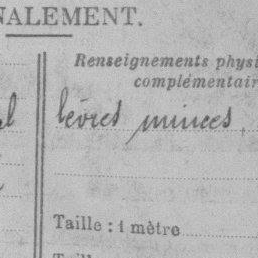 NALEMENT.
Renseignements physi
complémentair
lèvres minces.
Taille : 1 mètre